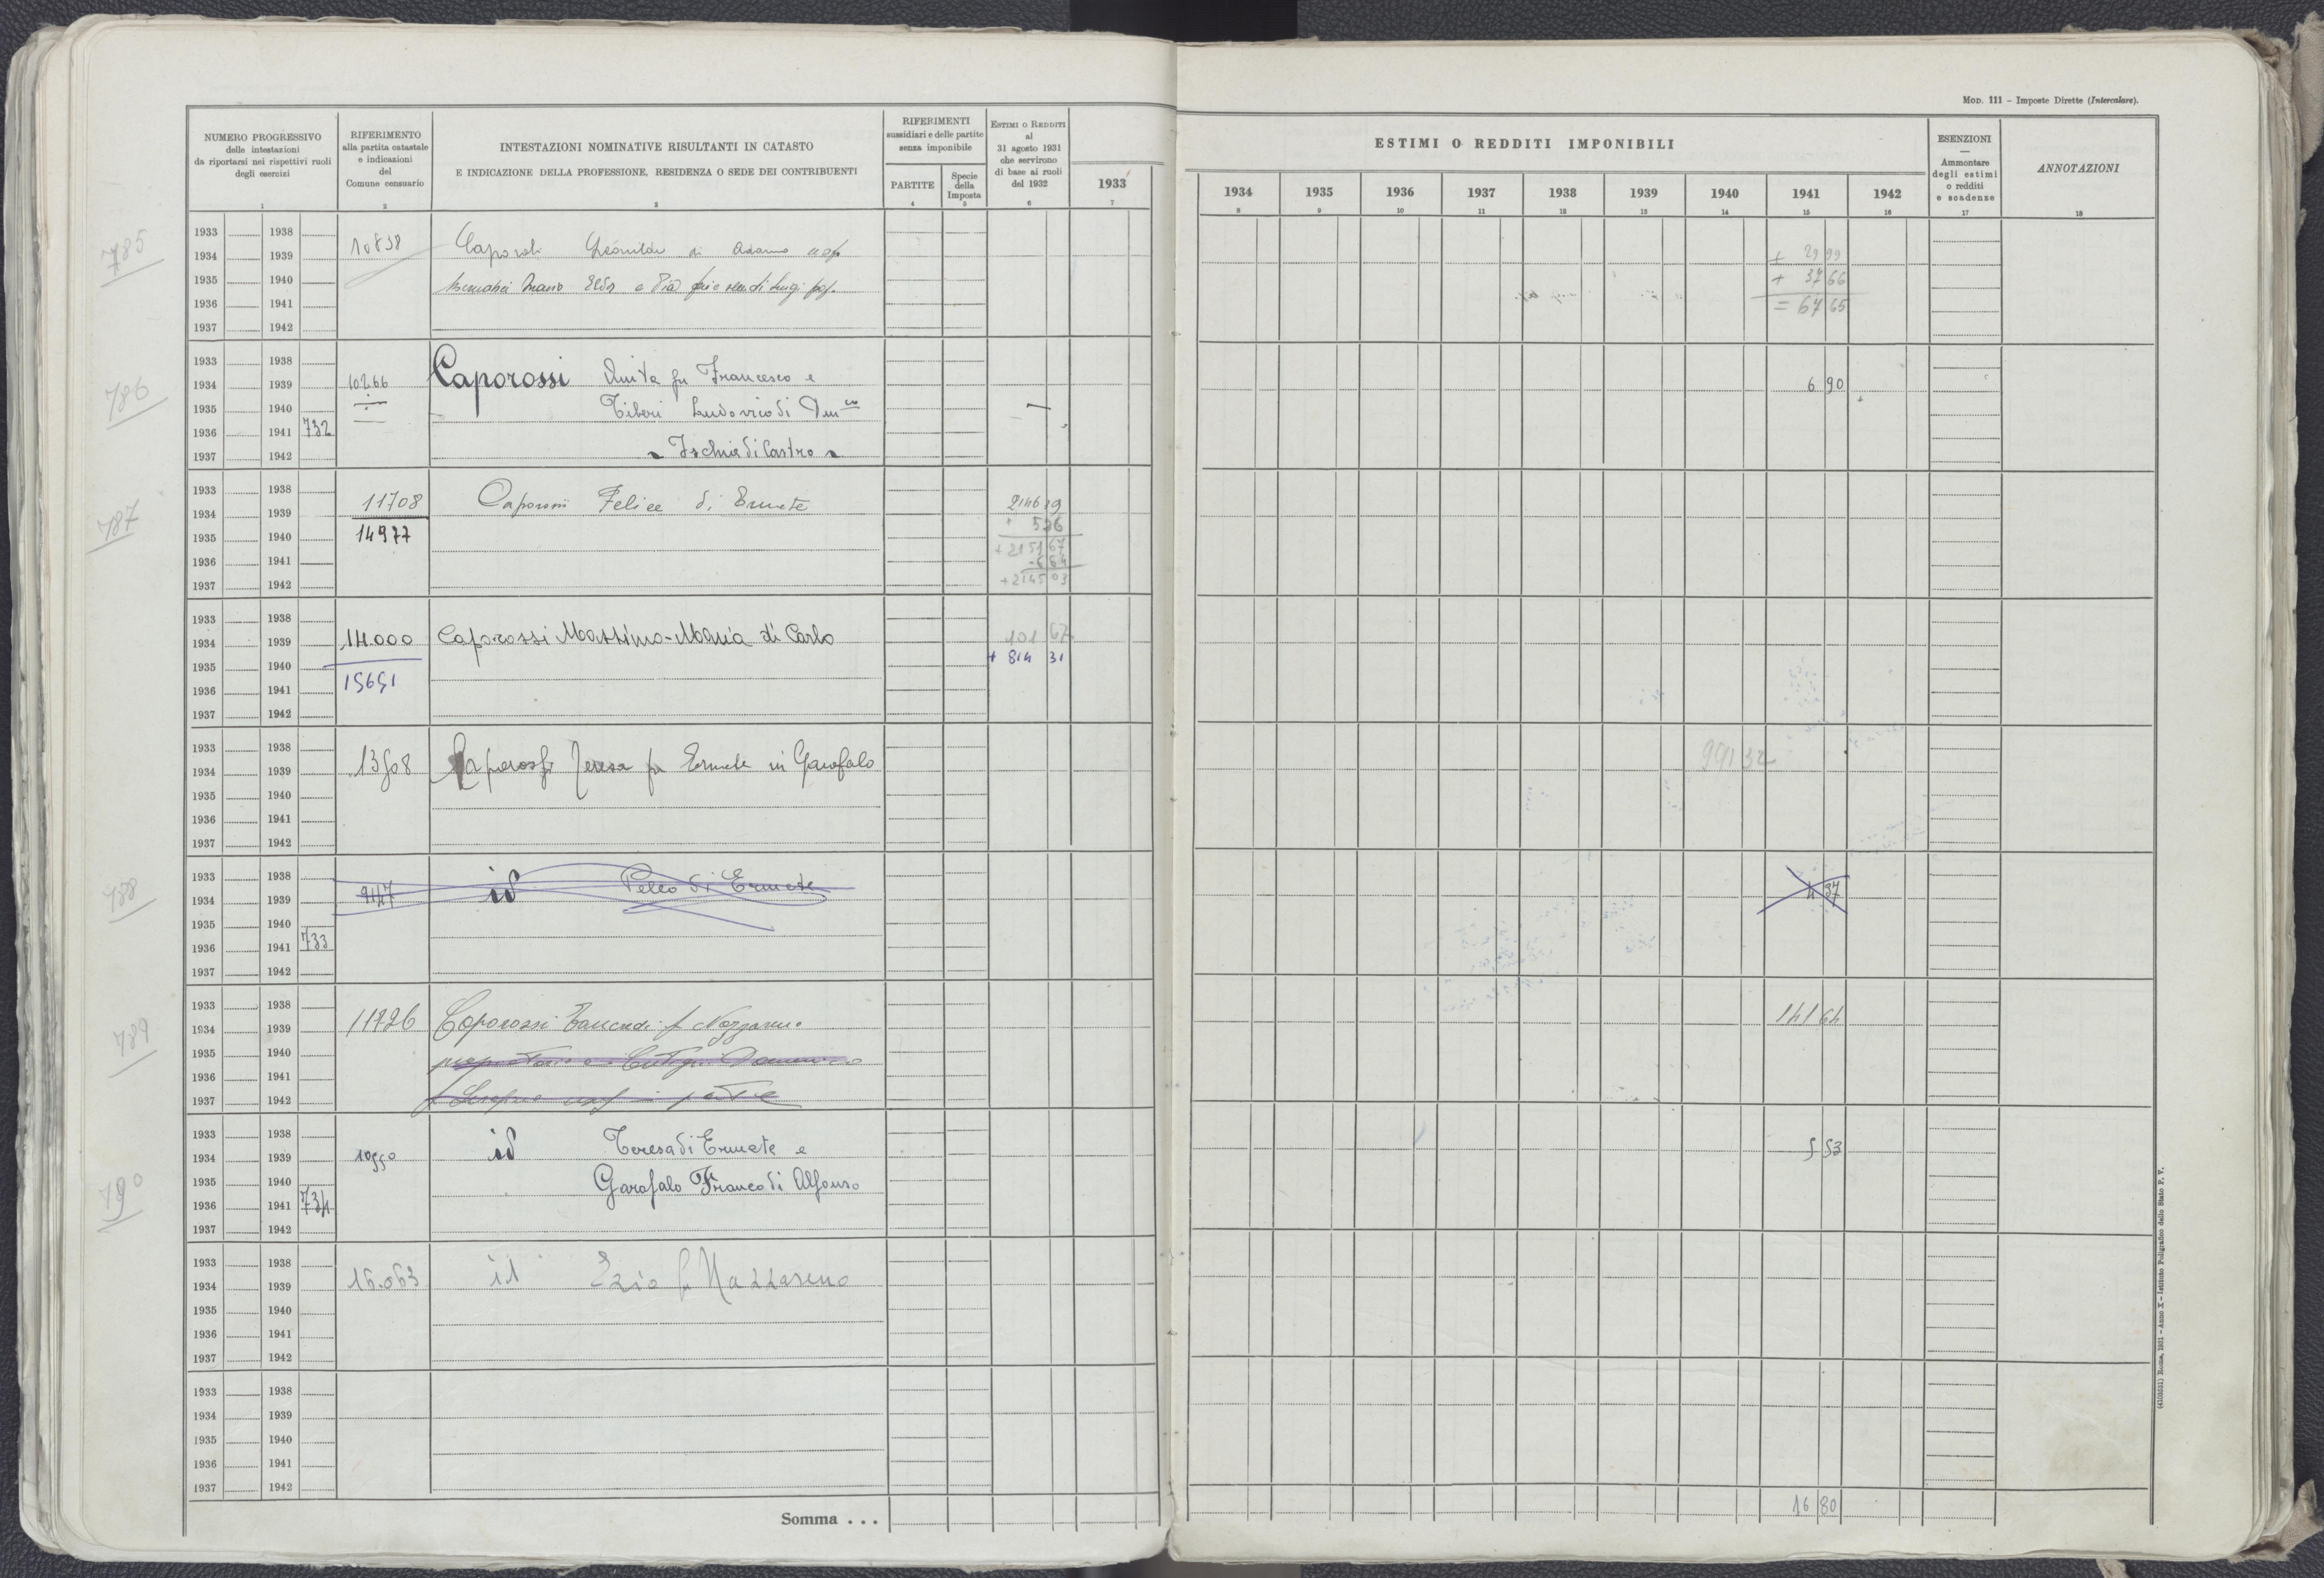 Mod. 111 – Imposte Dirette (Intercalare).
NUMERO PROGRESSIVO
delle intestazioni
da riportarsi nei rispettivi ruoli
degli esercizi
1
RIFERIMENTO
alla partita catastale
e indicazioni
del
Comune censuario
2
INTESTAZIONI NOMINATIVE RISULTANTI IN CATASTO
E INDICAZIONE DELLA PROFESSIONE, RESIDENZA O SEDE DEI CONTRIBUENTI
3
RIFERIMENTI
sussidiari e delle partite
senza imponibile
PARTITE
4
Specie
della
Imposta
5
Estimi o Redditi
al
31 agosto 1931
che servirono
di base ai ruoli
del 1932
6
1933
7
ESTIMI O REDDITI IMPONIBILI
1934 1935 1936 1937 1938 1939 1940 1941 1942
8 9 10 11 12 13 14 15 16
ESENZIONI
—
Ammontare
degli estimi
o redditi
e scadenze
17
ANNOTAZIONI
18
785
1933 1938
1934 1939 10838 di Adamo + 29 99
1935 1940 + 37 66
1936 1941 = 67 65
1937 1942
786
1933 1938
1934 1939 10266 Caporossi Anita fu Francesco e 6 90
1935 1940 Tiberi Ludovico di Dmco —
1936 1941 732
1937 1942 Ischia di Castro
787
1933 1938
1934 1939 11708 Caporossi Felice di Ermete 2146 39
1935 1940 14977 + 5 26
1936 1941 + 2151 67
- 6 64
1937 1942 + 2145 03
1933 1938
1934 1939 14.000 Caporossi Massimo-Maria di Carlo 101 67
1935 1940 + 814 31
1936 1941 15651
1937 1942
1933 1938
1934 1939 13508 Caporossi Teresa fu Ermete in Garofalo 991 32
1935 1940
1936 1941
1937 1942
788
1933 1938
1934 1939 9147 id di Ermete 4 37
1935 1940
1936 1941 733
1937 1942
789
1933 1938
1934 1939 11726 Caporossi f Nazzareno 141 64
1935 1940 Domenico
1936 1941
1937 1942
790
1933 1938
1934 1939 10550 id Teresa di Ermete e 5 53
1935 1940 Garofalo Franco di Alfonso
1936 1941 734
1937 1942
1933 1938
1934 1939 16.063 id Ezio fu Nazzareno
1935 1940
1936 1941
1937 1942
1933 1938
1934 1939
1935 1940
1936 1941
1937 1942
Somma . . . 16 80
(4103531) Roma, 1931 – Anno X – Istituto Poligrafico dello Stato P. V.